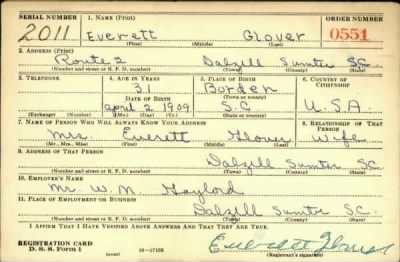 SERIAL NUMBER 1. NAME (Print) ORDER NUMBER
2011 Everett Glover 0551
(First) (Middle) (Last)
2. ADDRESS (Print)
Route 2 Dalzell Sumter S.C.
(Number and street or R. F. D. number) (Town) (County) (State)
3. TELEPHONE 4. AGE IN YEARS 5. PLACE OF BIRTH 6. COUNTRY OF CITIZENSHIP
31 Borden
DATE OF BIRTH (Town or county)
April 2 1909 S.C U.S.A
(Exchange) (Number) (Mo.) (Day) (Yr.) (State or country)
7. NAME OF PERSON WHO WILL ALWAYS KNOW YOUR ADDRESS 8. RELATIONSHIP OF THAT PERSON
Mrs Everett Glover Wife
(Mr., Mrs., Miss) (First) (Middle) (Last)
9. ADDRESS OF THAT PERSON
Dalzell Sumter S.C.
(Number and street or R. F. D. number) (Town) (County) (State)
10. EMPLOYER'S NAME
Mr. W. M. Gaylord
11. PLACE OF EMPLOYMENT OR BUSINESS
Dalzell Sumter S.C.
(Number and street or R. F. D. number) (Town) (County) (State)
I AFFIRM THAT I HAVE VERIFIED ABOVE ANSWERS AND THAT THEY ARE TRUE.
REGISTRATION CARD
D. S. S. Form 1 (over) 16—17105 Everett Glover
(Registrant's signature)